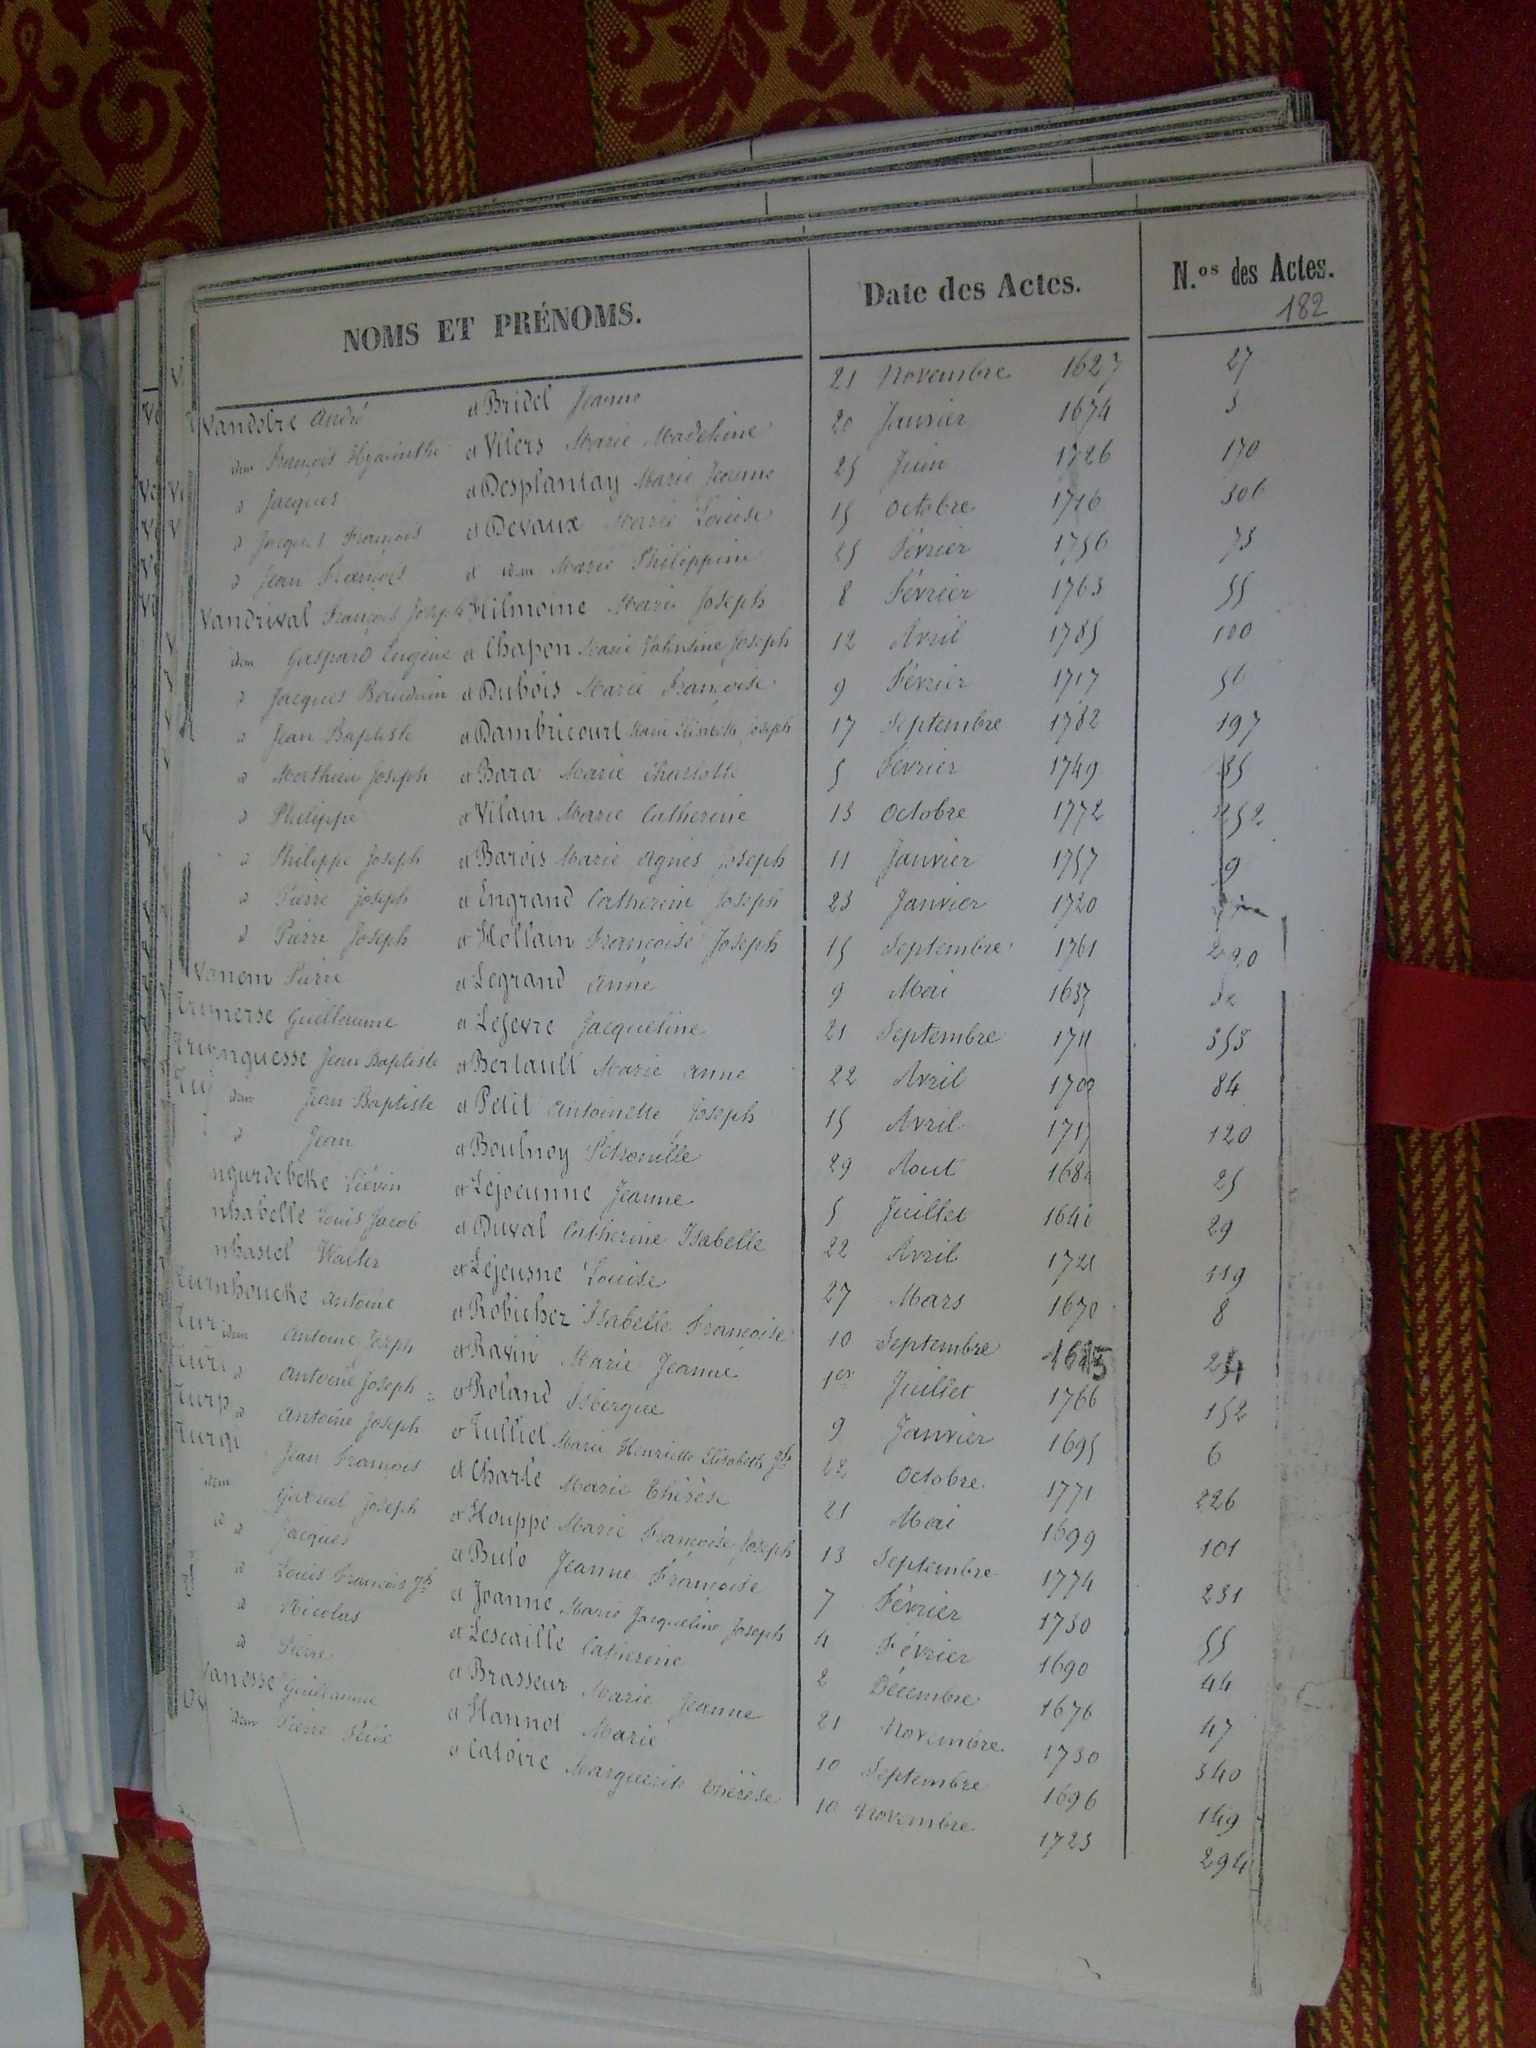 NOMS ET PRÉNOMS. Date des Actes. N.os des Actes.
182
Vandolre André et Bridel Jeanne 21 Novembre 1627 27
idem François Hyacinthe et Vilers Marie Madeleine 20 Janvier 1674 3
d Jacques et Desplantay Marie Jeanne 25 Juin 1726 170
d Jacques François et Devaux Marie Louise 15 Octobre 1716 306
d Jean François et idem Marie Philippine 25 Février 1756 73
Vandrival François Joseph Hilmoine Marie Joseph 8 Février 1763 55
idem Gaspard Eugène et Chapon Marie Valentine Joseph 12 Avril 1785 100
d Jacques Bauduin et Dubois Marie Françoise 9 Février 1717 56
d Jean Baptiste et Dambricourt Marie Elisabeth Joseph 17 Septembre 1782 197
d Mathieu Joseph et Bara Marie Charlotte 5 Février 1749 35
d Philippe et Vilain Marie Catherine 13 Octobre 1772 252
d Philippe Joseph et Barois Marie Agnès Joseph 11 Janvier 1757 9
d Pierre Joseph et Engrand Catherine Joseph 23 Janvier 1720
d Pierre Joseph et Hollain Françoise Joseph 15 Septembre 1761 220
Vanem Pierre et Legrand Anne 9 Mai 1637
Guillaume et Lefevre Jacqueline 21 Septembre 1711 353
Jean Baptiste et Bertault Marie Anne 22 Avril 1702 84
idem Jean Baptiste et Petit Antoinette Joseph 15 Avril 1717 120
d Jean et Boulnoy Pétronille 29 Aout 168 25
ngurdebeke Liévin et Lejoeunne Jeanne 5 Juillet 164 29
nhabelle Louis Jacob et Duval Catherine Isabelle 22 Avril 1721 119
nhastel Walter et Lejeusne Louise 27 Mars 1670 8
nhoucke Antoine et Robichez Isabelle Françoise 10 Septembre
idem Antoine Joseph et Ravin Marie Jeanne 1er Juillet 1766 152
d Antoine Joseph et Roland Isbergue 9 Janvier 1695 6
d Antoine Joseph et Tulliel Marie Henriette Elisabeth Jh 22 Octobre 1771 226
Jean François et Charlé Marie Thérèse 21 Mai 1699 101
idem Joseph et Houppe Marie Françoise Joseph 13 Septembre 1774 231
d d Jacques et Bulo Jeanne Françoise 7 Février 1730 55
d Louis François Jh et Joanne Marie Jacqueline Joseph 11 Février 1690 44
d Nicolas et Lescaille Catherine 2 Décembre 1676 47
d Pierre et Brasseur Marie Jeanne 21 Novembre 1730 340
anesse Guillaume et Hannot Marie 10 Septembre 1696 149
idem Pierre Félix et Catoire Marguerite Thérèse 10 Novembre 1723 294